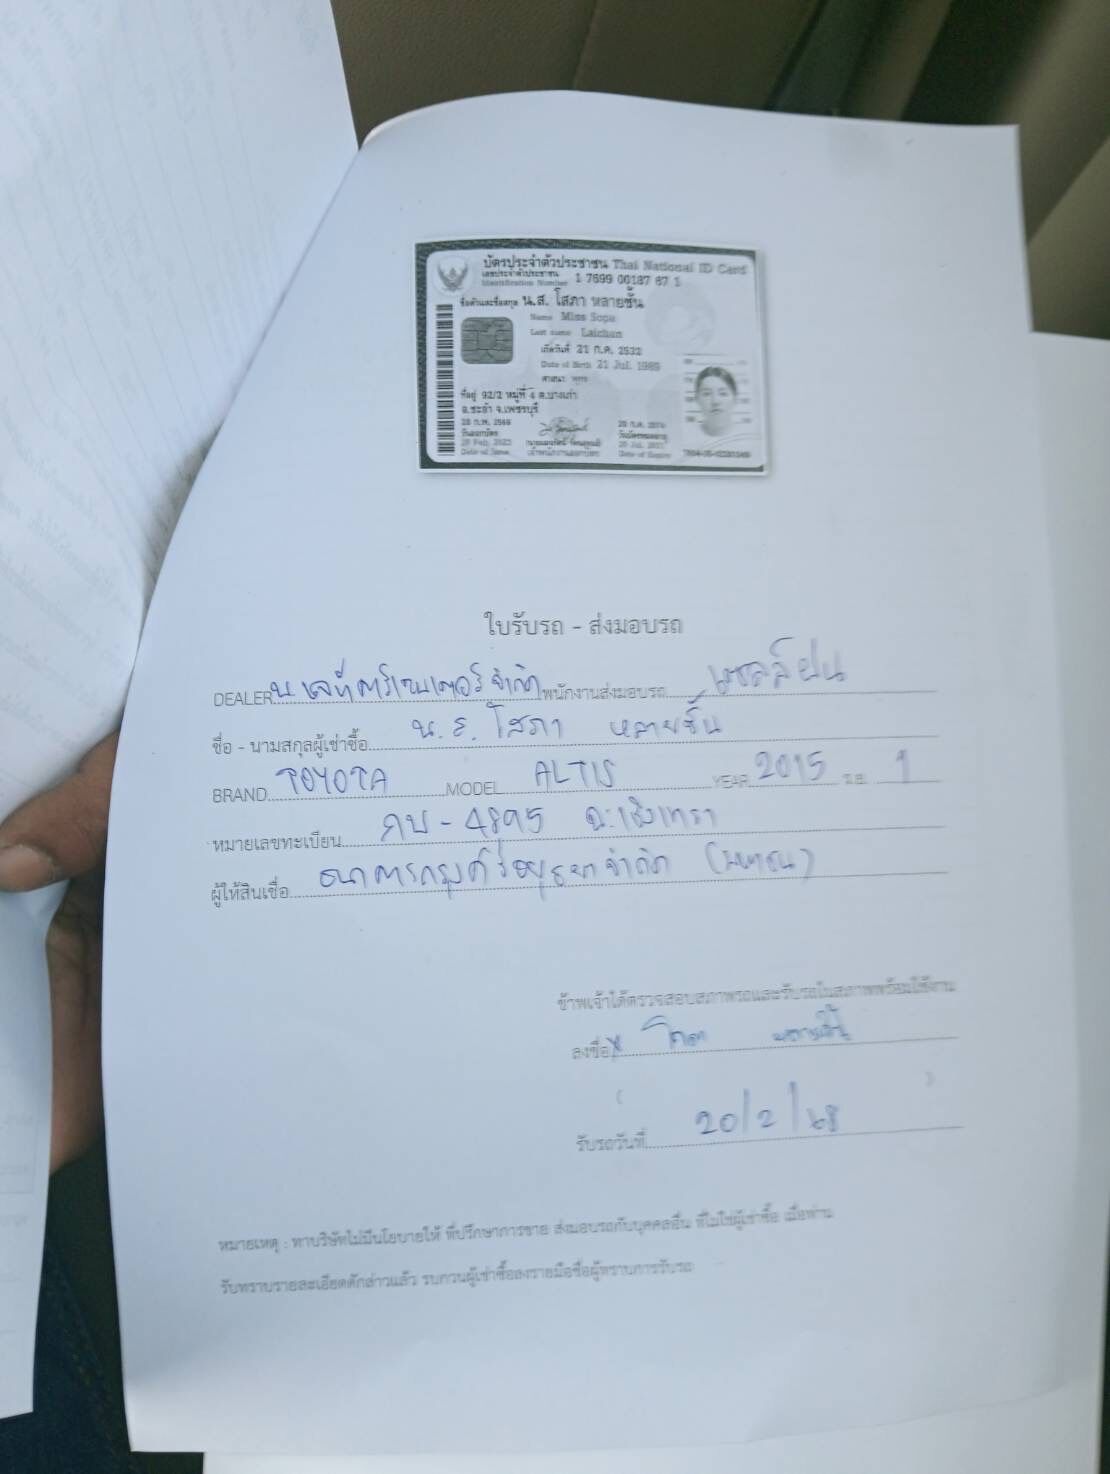 บัตรประจำตัวประชาชน Thai National ID Card
เลขประจำตัวประชาชน
Identification Number 1 7699 00187 67 1
ชื่อตัวและชื่อสกุล น.ส. โสภา หลายชั้น
Name Miss Sopa
Last name Laichan
เกิดวันที่ 21 ก.ค. 2532
Date of Birth 21 Jul. 1989
ศาสนา พุทธ
ที่อยู่ 92/2 หมู่ที่ 4 ต.บางเก่า
อ.ชะอำ จ.เพชรบุรี
วันออกบัตร
Date of Issue
เจ้าพนักงานออกบัตร
วันบัตรหมดอายุ
Date of Expiry
ใบรับรถ - ส่งมอบรถ
DEALER จำกัด พนักงานส่งมอบรถ
ชื่อ - นามสกุลผู้เช่าซื้อ น.ส. โสภา หลายชั้น
BRAND TOYOTA MODEL ALTIS YEAR 2015 1
หมายเลขทะเบียน 4895 ฉะเชิงเทรา
ผู้ให้สินเชื่อ ธนาคารกรุงศรีอยุธยาจำกัด (มหาชน)
ข้าพเจ้าได้ตรวจสอบสภาพรถและรับรถในสภาพพร้อมใช้งาน
ลงชื่อ x โสภา หลายชั้น
( )
รับรถวันที่ 20/2/68
หมายเหตุ : ทางบริษัทไม่มีนโยบายให้ ที่ปรึกษาการขาย ส่งมอบรถกับบุคคลอื่น ที่ไม่ใช่ผู้เช่าซื้อ เมื่อท่าน
รับทราบรายละเอียดดังกล่าวแล้ว รบกวนผู้เช่าซื้อลงรายมือชื่อผู้ทราบการรับรถ